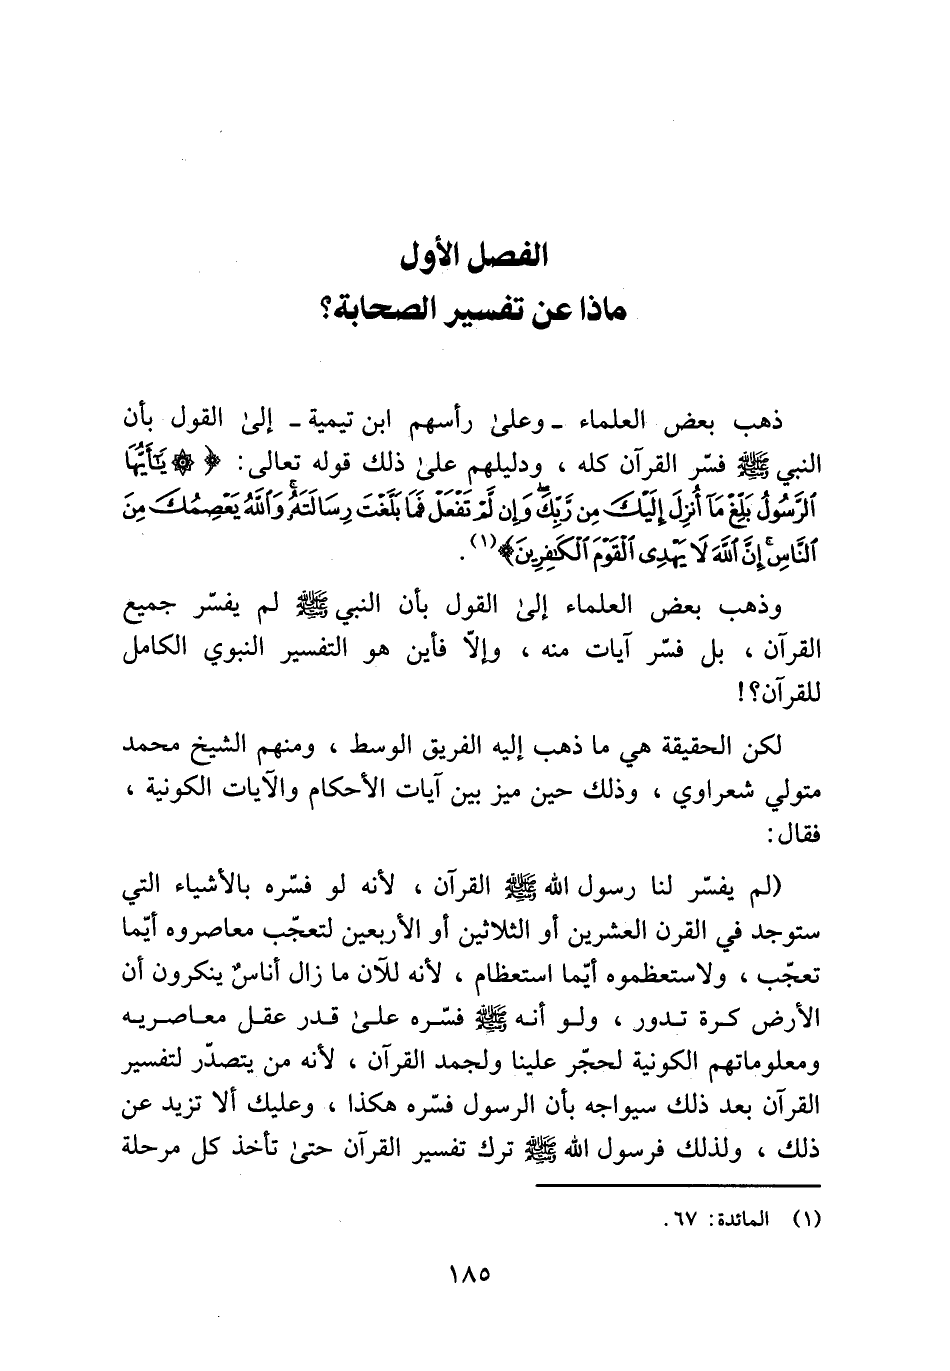 الفصل الأول
ماذا عن تفسير الصحابة؟
ذهب بعض العلماء ـ وعلىٰ رأسهم ابن تيمية ـ إلىٰ القول بأن
النبي ﷺ فسّر القرآن كله ، ودليلهم علىٰ ذلك قوله تعالى: ﴿ ۞ يَٰٓأَيُّهَا
ٱلرَّسُولُ بَلِّغْ مَآ أُنزِلَ إِلَيْكَ مِن رَّبِّكَ ۖ وَإِن لَّمْ تَفْعَلْ فَمَا بَلَّغْتَ رِسَالَتَهُۥ ۚ وَٱللَّهُ يَعْصِمُكَ مِنَ
ٱلنَّاسِ ۗ إِنَّ ٱللَّهَ لَا يَهْدِى ٱلْقَوْمَ ٱلْكَٰفِرِينَ﴾(١) .
وذهب بعض العلماء إلىٰ القول بأن النبي ﷺ لم يفسّر جميع
القرآن ، بل فسّر آيات منه ، وإلاّ فأين هو التفسير النبوي الكامل
للقرآن؟!
لكن الحقيقة هي ما ذهب إليه الفريق الوسط ، ومنهم الشيخ محمد
متولي شعراوي ، وذلك حين ميز بين آيات الأحكام والآيات الكونية ،
فقال:
(لم يفسّر لنا رسول الله ﷺ القرآن ، لأنه لو فسّره بالأشياء التي
ستوجد في القرن العشرين أو الثلاثين أو الأربعين لتعجّب معاصروه أيّما
تعجّب ، ولاستعظموه أيّما استعظام ، لأنه للآن ما زال أناسٌ ينكرون أن
الأرض كرة تدور ، ولو أنه ﷺ فسّره علىٰ قدر عقل معاصريه
ومعلوماتهم الكونية لحجّر علينا ولجمد القرآن ، لأنه من يتصدّر لتفسير
القرآن بعد ذلك سيواجه بأن الرسول فسّره هكذا ، وعليك ألا تزيد عن
ذلك ، ولذلك فرسول الله ﷺ ترك تفسير القرآن حتىٰ تأخذ كل مرحلة
(١) المائدة: ٦٧ .
١٨٥